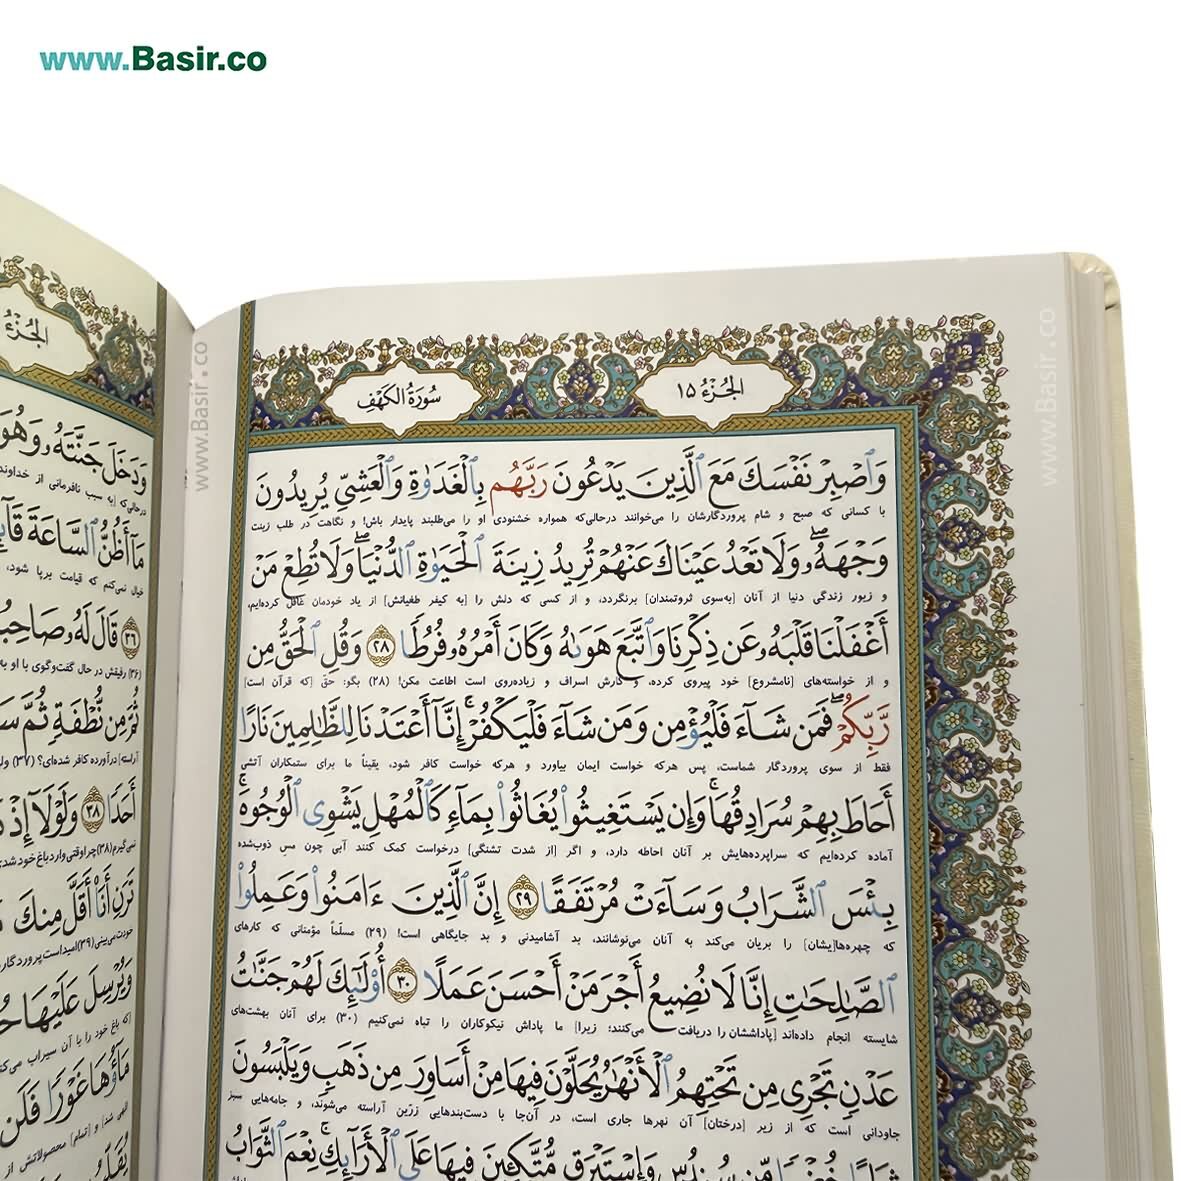 www.Basir.co
الجُزْءُ ١٥
سُورَةُ الكَهْفِ
وَٱصْبِرْ نَفْسَكَ مَعَ ٱلَّذِينَ يَدْعُونَ رَبَّهُم بِٱلْغَدَوٰةِ وَٱلْعَشِىِّ يُرِيدُونَ
با کسانی که صبح و شام پروردگارشان را می‌خوانند درحالی‌که همواره خشنودی او را می‌طلبند پایدار باش! و نگاهت در طلب زینت
وَجْهَهُۥ ۖ وَلَا تَعْدُ عَيْنَاكَ عَنْهُمْ تُرِيدُ زِينَةَ ٱلْحَيَوٰةِ ٱلدُّنْيَا ۖ وَلَا تُطِعْ مَنْ
و زیور زندگی دنیا از آنان [به‌سوی ثروتمندان] برنگردد، و از کسی که دلش را [به کیفر طغیانش] از یاد خودمان غافل کرده‌ایم،
أَغْفَلْنَا قَلْبَهُۥ عَن ذِكْرِنَا وَٱتَّبَعَ هَوَىٰهُ وَكَانَ أَمْرُهُۥ فُرُطًا ٢٨ وَقُلِ ٱلْحَقُّ مِن
و از خواسته‌های [نامشروع] خود پیروی کرده، و کارش اسراف و زیاده‌روی است اطاعت مکن! (۲۸) بگو: حق [که قرآن است]
رَّبِّكُمْ ۖ فَمَن شَآءَ فَلْيُؤْمِن وَمَن شَآءَ فَلْيَكْفُرْ ۚ إِنَّآ أَعْتَدْنَا لِلظَّٰلِمِينَ نَارًا
فقط از سوی پروردگار شماست، پس هرکه خواست ایمان بیاورد و هرکه خواست کافر شود، یقیناً ما برای ستمکاران آتشی
أَحَاطَ بِهِمْ سُرَادِقُهَا ۚ وَإِن يَسْتَغِيثُوا۟ يُغَاثُوا۟ بِمَآءٍ كَٱلْمُهْلِ يَشْوِى ٱلْوُجُوهَ ۚ
آماده کرده‌ایم که سراپرده‌هایش بر آنان احاطه دارد، و اگر [از شدت تشنگی] درخواست کمک کنند آبی چون مس ذوب‌شده
بِئْسَ ٱلشَّرَابُ وَسَآءَتْ مُرْتَفَقًا ٢٩ إِنَّ ٱلَّذِينَ ءَامَنُوا۟ وَعَمِلُوا۟
که چهره‌ها[یشان] را بریان می‌کند به آنان می‌نوشانند، بد آشامیدنی و بد جایگاهی است! (۲۹) مسلّماً مؤمنانی که کارهای
ٱلصَّٰلِحَٰتِ إِنَّا لَا نُضِيعُ أَجْرَ مَنْ أَحْسَنَ عَمَلًا ٣٠ أُو۟لَٰٓئِكَ لَهُمْ جَنَّٰتُ
شایسته انجام داده‌اند [پاداششان را دریافت می‌کنند؛ زیرا] ما پاداش نیکوکاران را تباه نمی‌کنیم (۳۰) برای آنان بهشت‌های
عَدْنٍ تَجْرِى مِن تَحْتِهِمُ ٱلْأَنْهَٰرُ يُحَلَّوْنَ فِيهَا مِنْ أَسَاوِرَ مِن ذَهَبٍ وَيَلْبَسُونَ
جاودانی است که از زیر [درختان] آن نهرها جاری است، در آن‌جا با دست‌بندهایی زرّین آراسته می‌شوند، و جامه‌هایی سبز
ثِيَابًا خُضْرًا مِّن سُندُسٍ وَإِسْتَبْرَقٍ مُّتَّكِـِٔينَ فِيهَا عَلَى ٱلْأَرَآئِكِ ۚ نِعْمَ ٱلثَّوَابُ
الجُزْءُ
وَدَخَلَ جَنَّتَهُۥ وَهُوَ
درحالی‌که [به سبب نافرمانی از خداوند
مَآ أَظُنُّ ٱلسَّاعَةَ
خیال نمی‌کنم که قیامت برپا شود،
٣٦ قَالَ لَهُۥ
(۳۶) رفیقش در حال گفت‌وگوی با او به
ثُمَّ مِن نُّطْفَةٍ ثُمَّ
آراسته] درآورده کافر شده‌ای؟ (۳۷)
أَحَدًا ٣٨ وَلَوْلَآ إِذْ
نمی‌گیرم (۳۸) چرا وقتی وارد باغ خود شدی
تَرَنِ أَنَا۠ أَقَلَّ مِنكَ
خودت می‌بینی (۳۹) امید است پروردگار
وَيُرْسِلَ عَلَيْهَا
که باغ خود را با آن سیراب
مَآؤُهَا غَوْرًا فَلَن
و [تمام] محصولاتش از
www.Basir.co
www.Basir.co